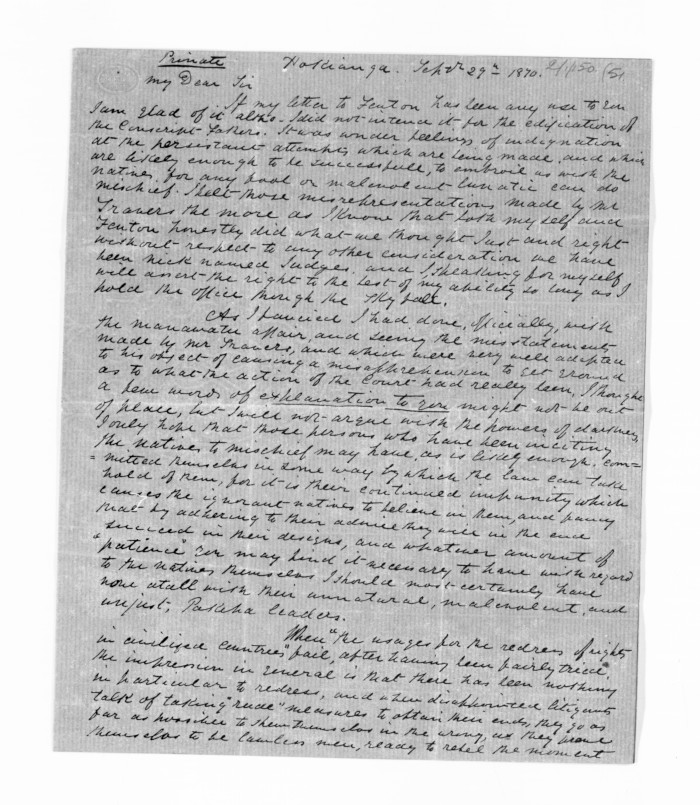 Private
Hokianga. Septr 29th 1870.
My Dear Sir
If my letter to Fenton has been any use to you
I am glad of it altho- I did not intend it for the edification of
the Conscript Fathers. It was under feelings of indignation
at the persistant attempts which are being made, and which
are likely enough to be successfull, to embroil us with the
natives, for any fool or malevolent lunatic can do
mischief. I felt those misrepresentations made by Mr
Travers the more as I know that both myself and
Fenton honestly did what we thought Just and right
without respect to any other consideration we have
been nick named Judges. and I speaking for myself
will assert the right to the best of my ability so long as I
hold the office though the sky fall.
As I fancied I had done, officially, with
the manawatu affair, and seeing the misstatements
made by Mr Travers, and which were very well adapted
to his object of causing a misapprehension to get ground
as to what the action of the Court had really been, I thought
a few words of explanation to you might not be out
of place, but I will not argue with the powers of darkness,
I only hope that those persons who have been inciting
the natives to mischief may have, as is likely enough, com=
=mitted themselves in some way by which the law can take
hold of them, for it is their continued impunity which
causes the ignorant natives to believe in them, and fancy
that by adhering to their advice they will in the end
succeed in their designs, and whatever amount of
"patience" you may find it necessary to have with regard
to the natives themselves I should most certainly have
none atall with their unnatural, malevolent, and
unjust, Pakeha leaders.
When "the usages for the redress of rights
in civilised countries" fail, after having been fairly tried,
the impression in general is that there has been nothing
in particular to redress, and when disappointed litigants
talk of taking "rude" measures to obtain their ends, they go as
far as possible to put themselves in the wrong, as they
themselves to be lawless men, ready to rebel the moment